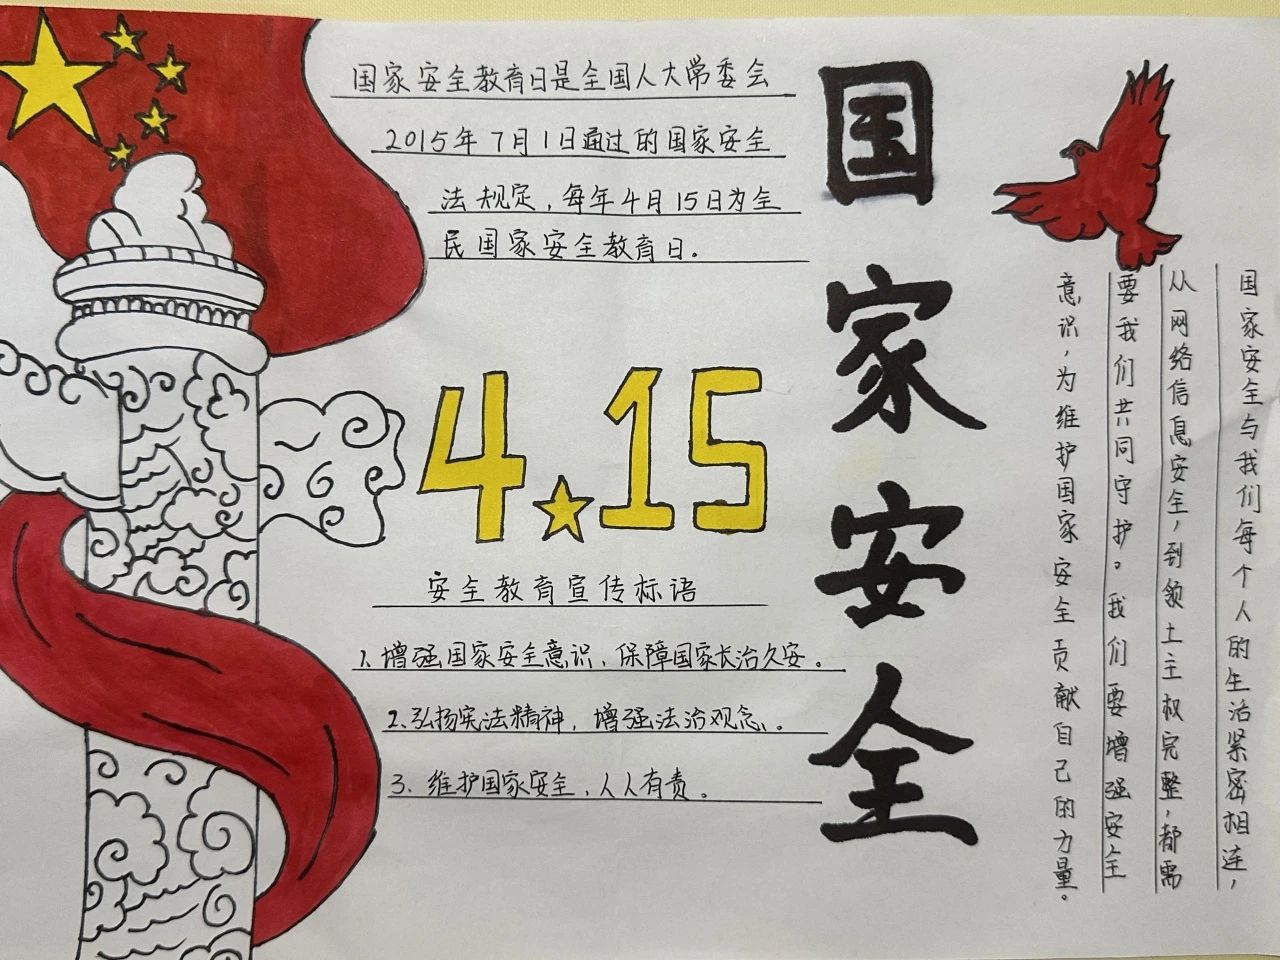 国家安全教育日是全国人大常委会
2015年7月1日通过的国家安全
法规定，每年4月15日为全
民国家安全教育日。
4.15
安全教育宣传标语
1、增强国家安全意识，保障国家长治久安。
2、弘扬宪法精神，增强法治观念。
3、维护国家安全，人人有责。
国家安全
国家安全与我们每个人的生活紧密相连，
从网络信息安全，到领土主权完整，都需
要我们共同守护。我们要增强安全
意识，为维护国家安全贡献自己的力量。